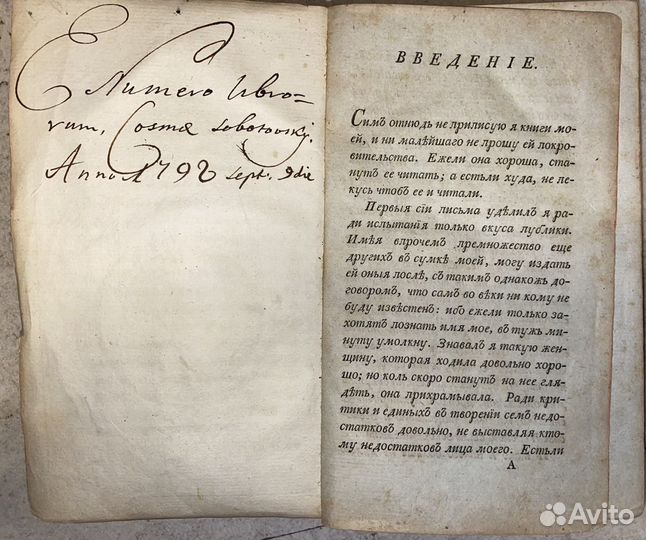 E Numero libro=
rum, Cosmæ
Anno 1792 sept. 9 die
ВВЕДЕНІЕ.
Симъ отнюдь не приписую я книги мо-
ей, и ни малѣйшаго не прошу ей покро-
вительства. Ежели она хороша, ста-
нутъ ее читать; а естьли худа, не пе-
кусь чтобъ ее и читали.
Первыя сіи письма удѣлилъ я ра-
ди испытанія только вкуса публики.
Имѣя впрочемъ премножество еще
другихъ въ сумкѣ моей, могу издать
ей оныя послѣ, съ такимъ однакожь до-
говоромъ, что самъ во вѣки ни кому не
буду извѣстенъ: ибо ежели только за-
хотятъ познать имя мое, въ тужъ ми-
нуту умолкну. Знавалъ я такую жен-
щину, которая ходила довольно хоро-
шо; но коль скоро станутъ на нее гля-
дѣть, она прихрамывала. Ради кри-
тики и единыхъ въ твореніи семъ недо-
статковъ довольно, не выставляя кто-
му недостатковъ лица моего. Естьли
А
Avito